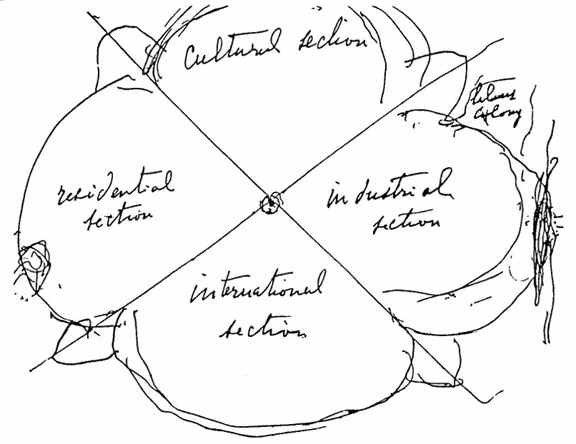 Cultural section
residential
section
industrial
section
international
section